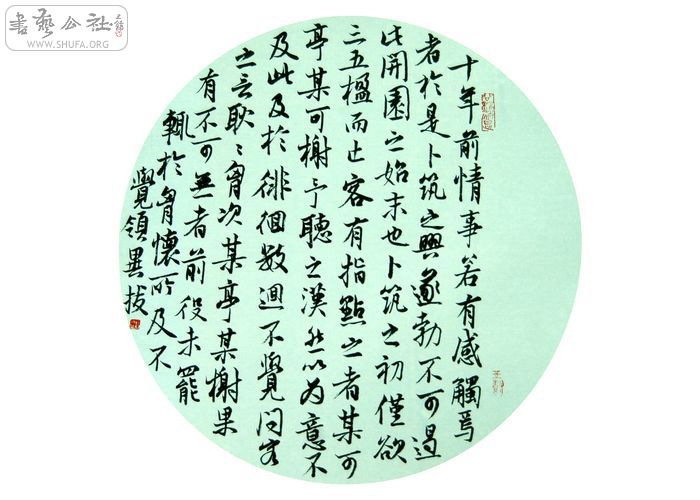 書藝公社
WWW.SHUFA.ORG
十年前情事若有感觸焉
者於是卜筑之興遂勃不可遏
此開園之始末也卜筑之初僅欲
三五楹而止客有指點之者某可
亭某可榭予聽之漠然以為意不
及此及於徘徊數迴不覺問客
之言耿〻胷次某亭某榭果
有不可無者前役未罷
輒於胷懷所及不
覺領異拔